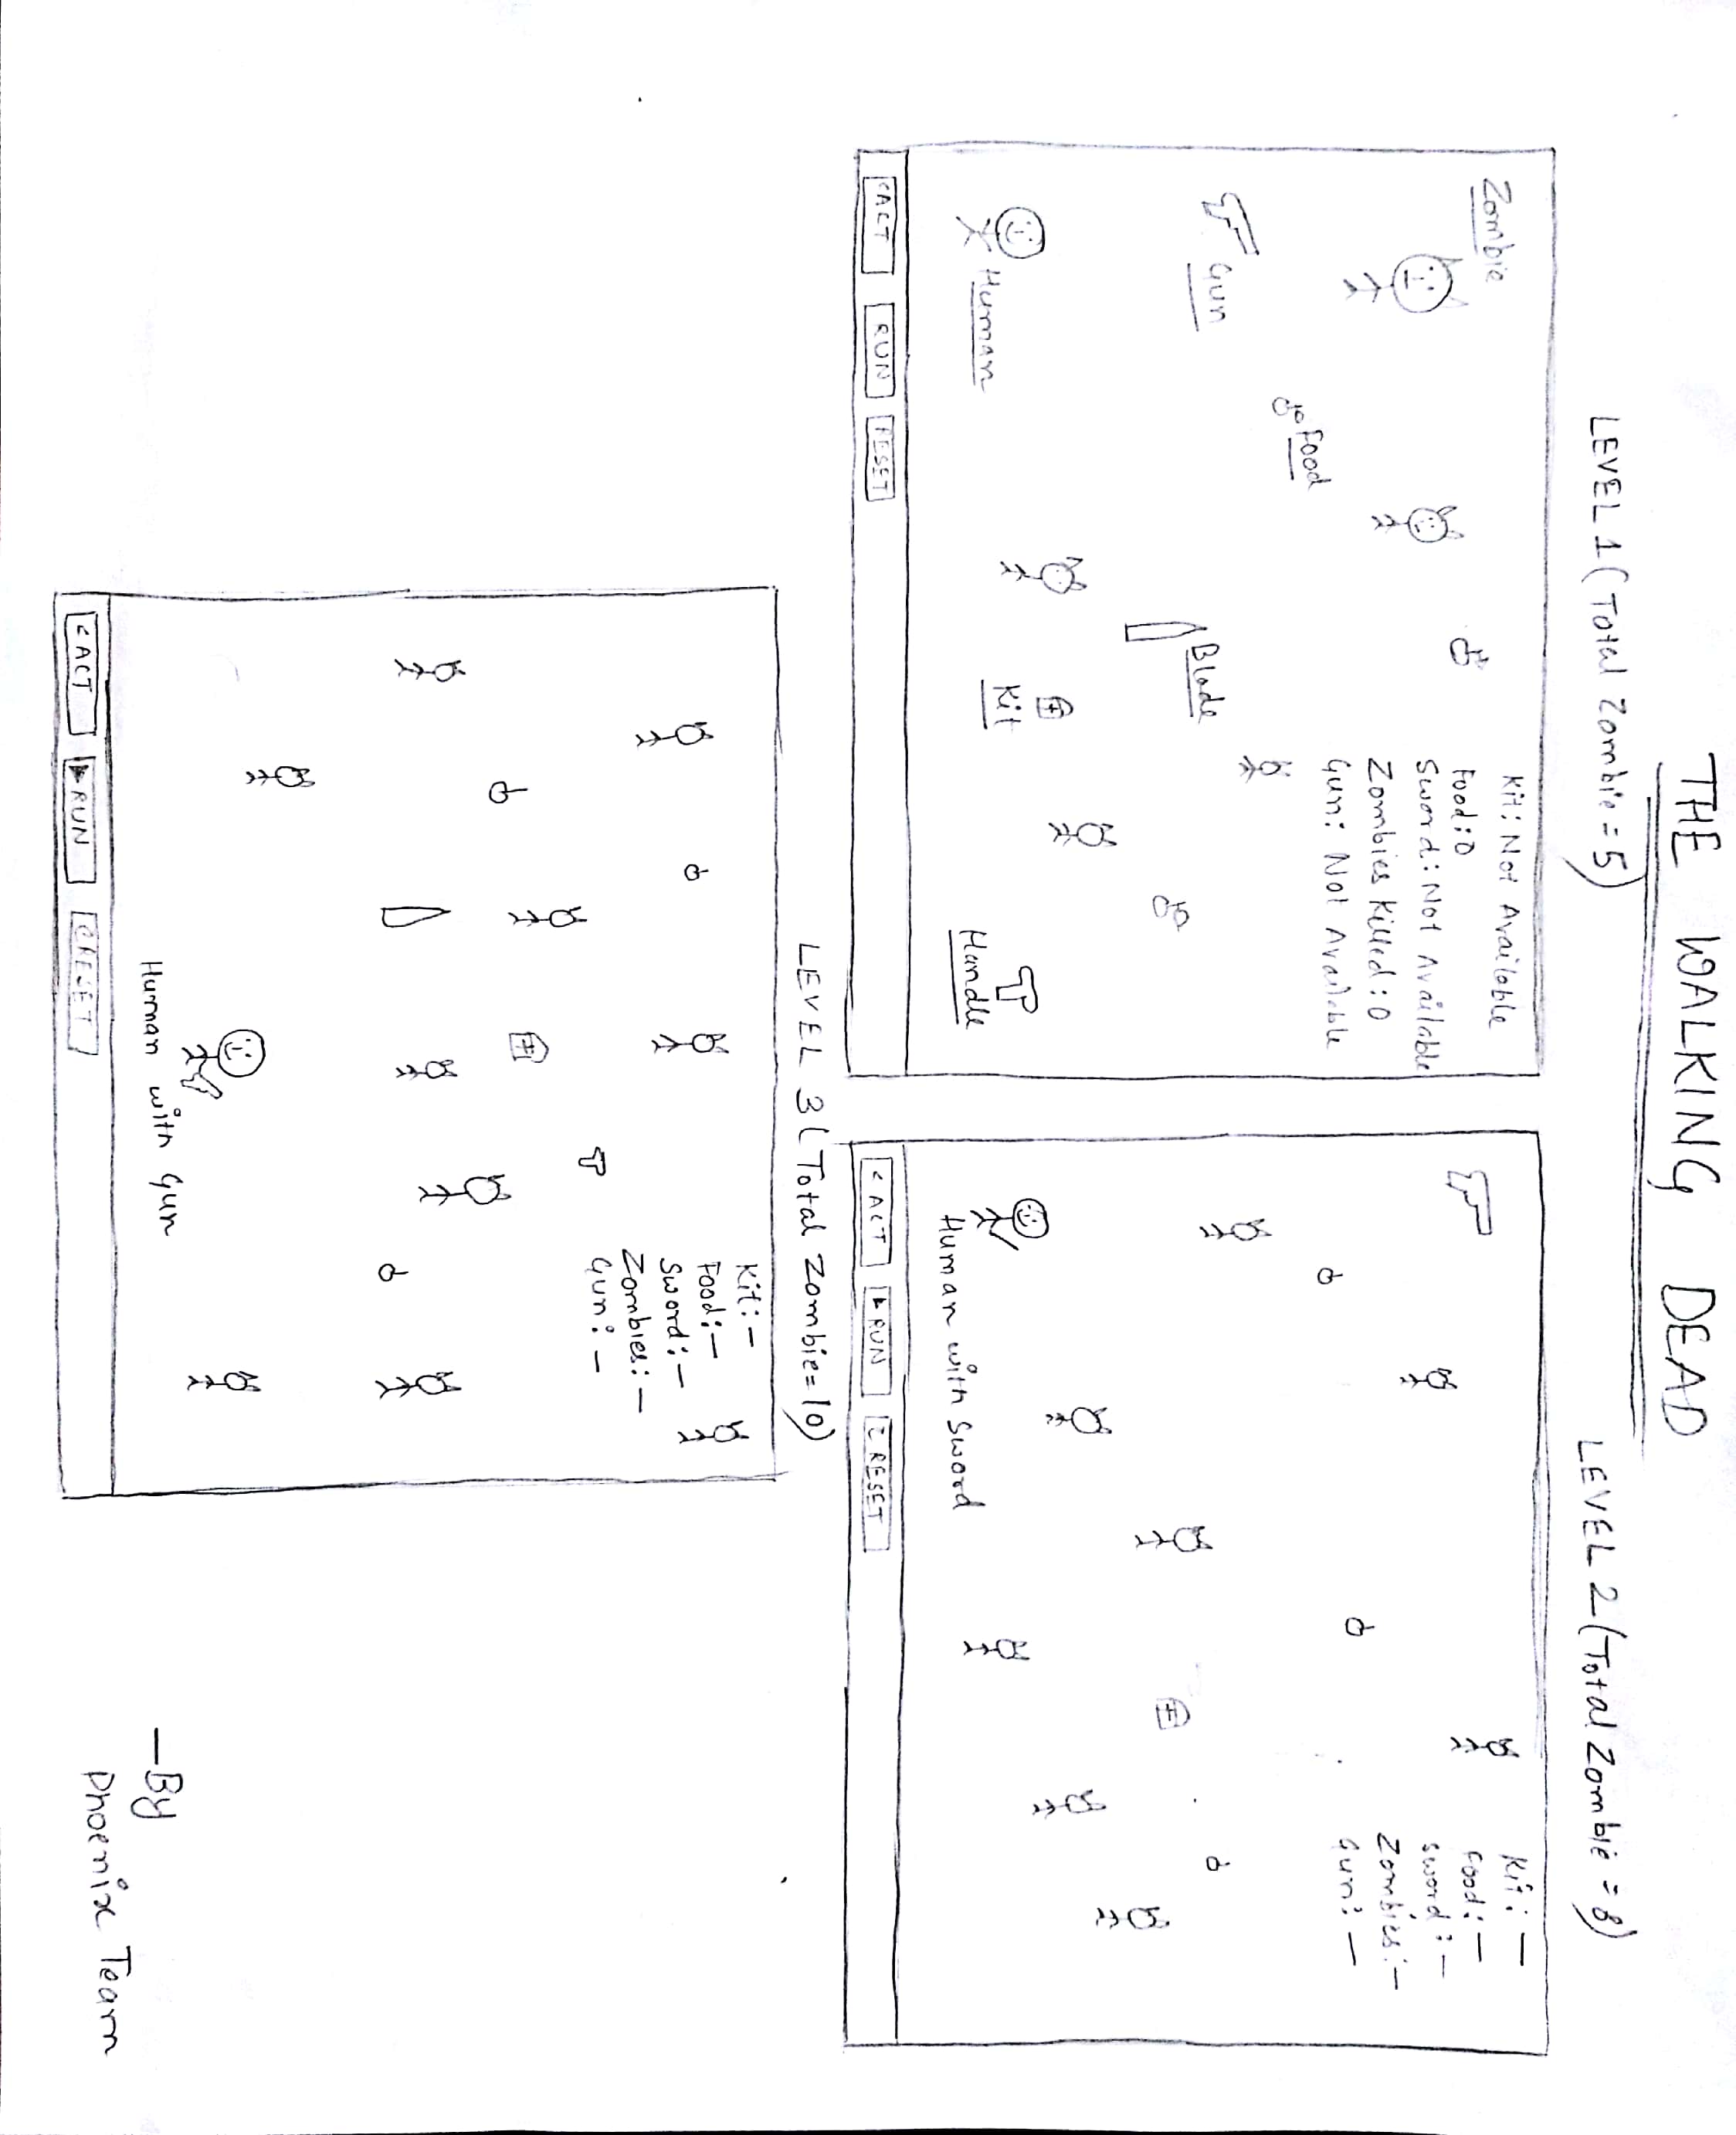 THE WALKING DEAD
LEVEL 1 (Total Zombie = 5)
LEVEL 2 (Total Zombie = 8)
Zombie
Kit: Not Available
Food: 0
Sword: Not Available
Zombies Killed: 0
Gun: Not Available
Food
Gun
Blade
Human
Kit
Handle
<ACT
RUN
RESET
Kit: —
Food: —
Sword: —
Zombies: —
Gun: —
Human with Sword
< ACT
▶ RUN
RESET
LEVEL 3 (Total Zombie=10)
Kit: —
Food: —
Sword: —
Zombies: —
Gun: —
Human with Gun
< ACT
▶ RUN
RESET
— By
Phoenix Team